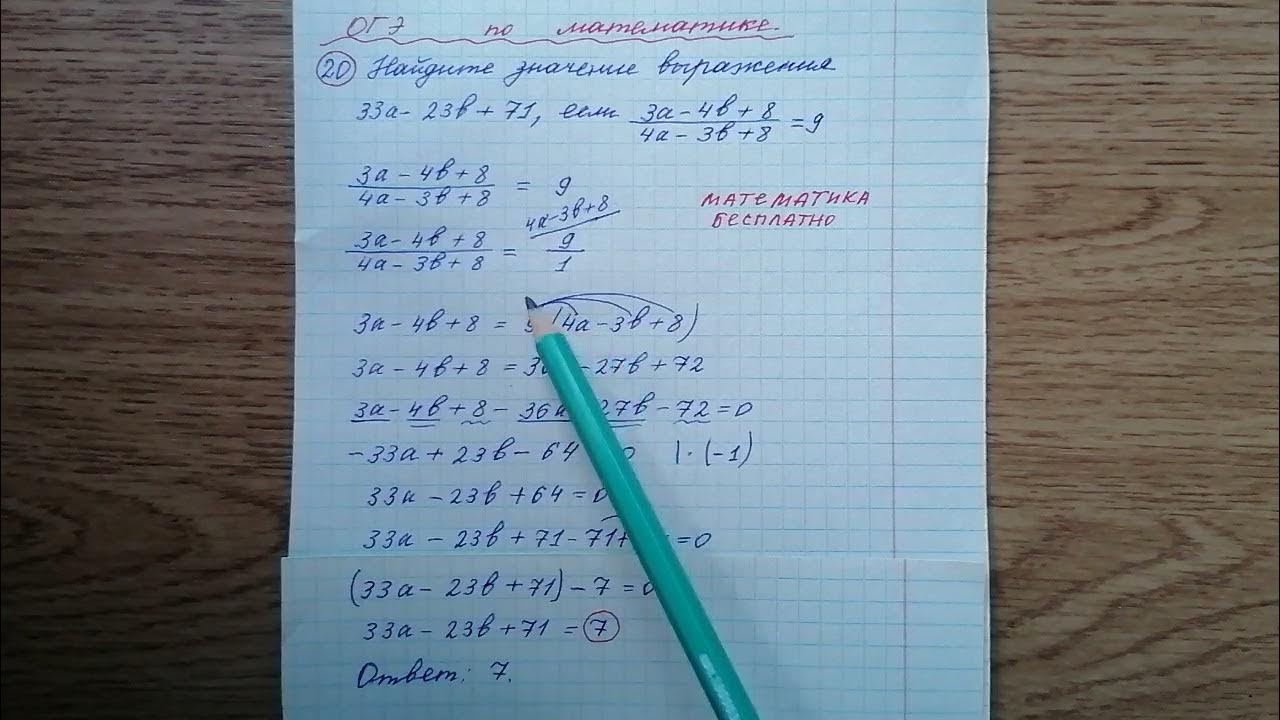 ОГЭ по математике.
20 Найдите значение выражения
33a - 23b + 71, если (3a - 4b + 8)/(4a - 3b + 8) = 9
(3a - 4b + 8)/(4a - 3b + 8) = 9
МАТЕМАТИКА
БЕСПЛАТНО
4a-3b+8
(3a - 4b + 8)/(4a - 3b + 8) = 9/1
3a - 4b + 8 = (4a - 3b + 8)
3a - 4b + 8 = - 27b + 72
3a - 4b + 8 - 36a 27b - 72 = 0
-33a + 23b - 64 0 | · (-1)
33a - 23b + 64 = 0
33a - 23b + 71 - 71 = 0
(33a - 23b + 71) - 7 = 0
33a - 23b + 71 = 7
Ответ: 7.